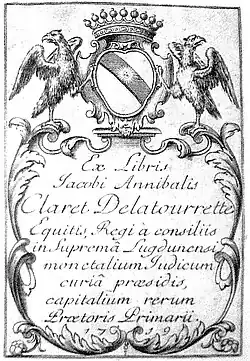 Ex Libris
Jacobi Annibalis
Claret Delatourrette
Equitis, Regi à consiliis
in Supremâ Lugdunensi
monetalium Judicum
curiâ præsidis,
capitalium rerum
Prætoris Primarii,
1719